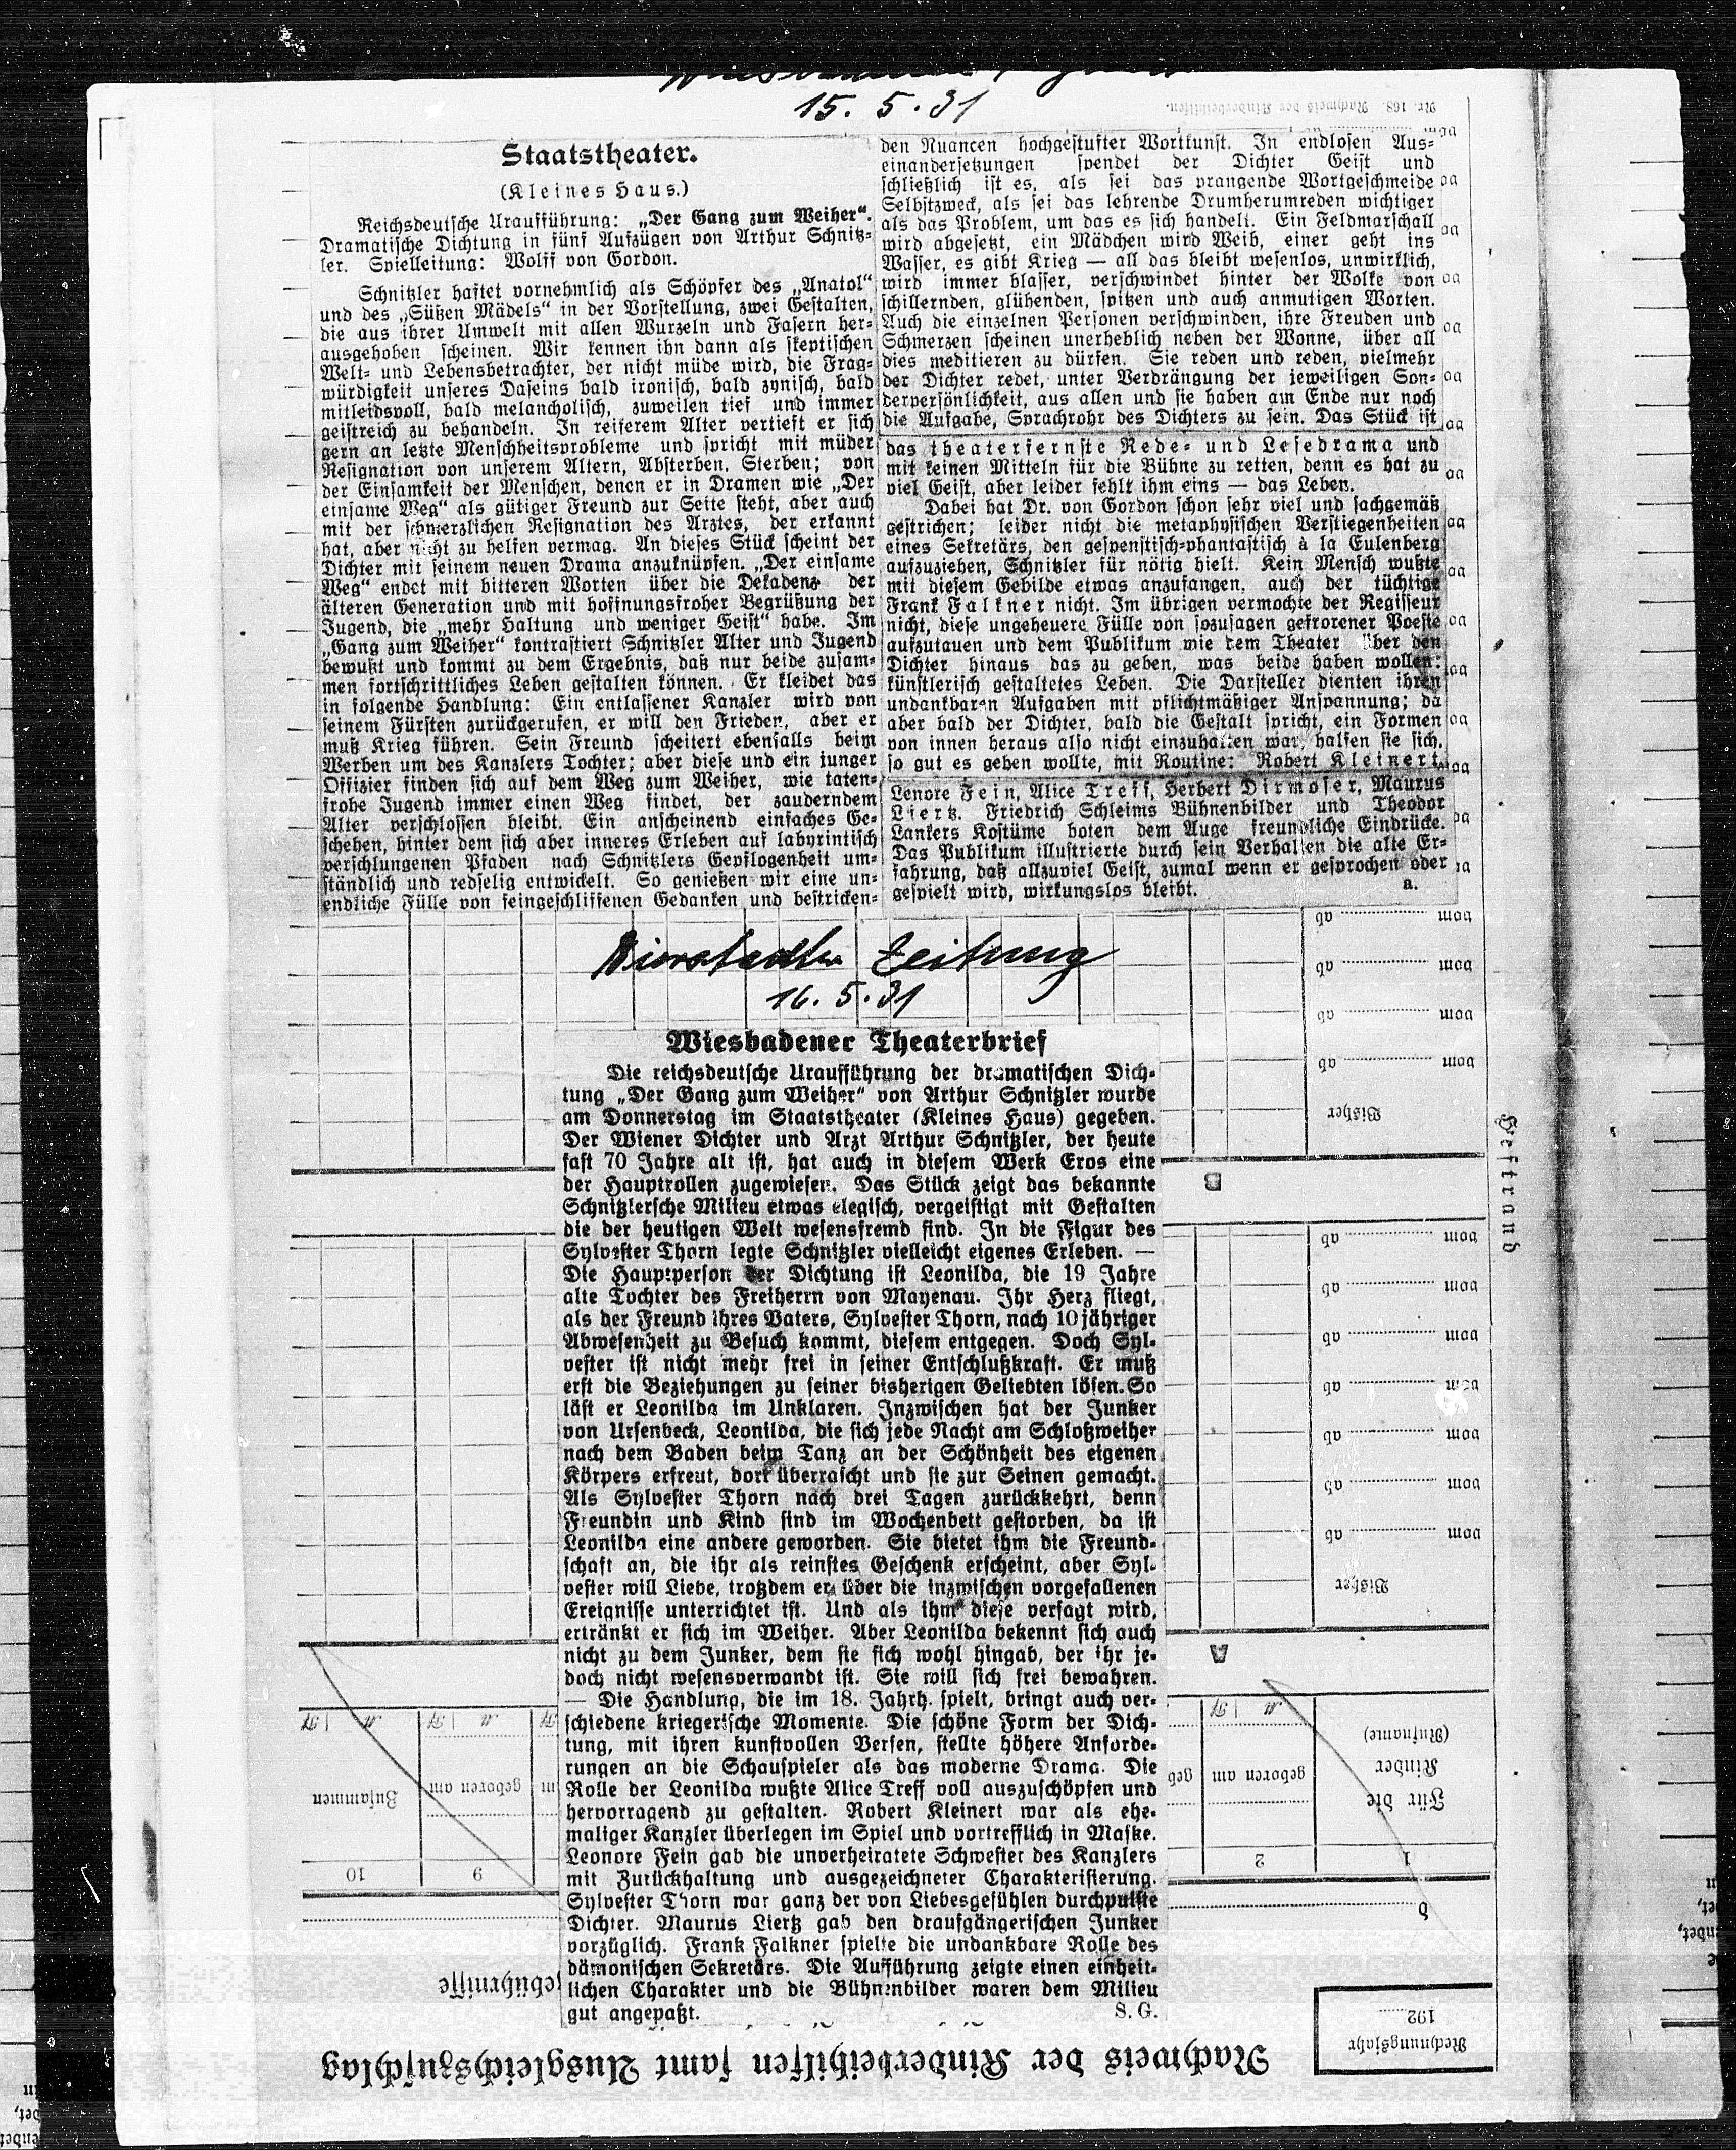 15. 5. 31
Nr. 168. Nachweis der Kinderbeihilfen.
Staatstheater.
(Kleines Haus.)
Reichsdeutsche Uraufführung: „Der Gang zum Weiher“.
Dramatische Dichtung in fünf Aufzügen von Arthur Schnitz-
ler. Spielleitung: Wolff von Gordon.
Schnitzler haftet vornehmlich als Schöpfer des „Anatol“
und des „Süßen Mädels“ in der Vorstellung, zwei Gestalten,
die aus ihrer Umwelt mit allen Wurzeln und Fasern her-
ausgehoben scheinen. Wir kennen ihn dann als skeptischen
Welt- und Lebensbetrachter, der nicht müde wird, die Frag-
würdigkeit unseres Daseins bald ironisch, bald zynisch, bald
mitleidsvoll, bald melancholisch, zuweilen tief und immer
geistreich zu behandeln. In reiferem Alter vertieft er sich
gern an letzte Menschheitsprobleme und spricht mit müder
Resignation von unserem Altern, Absterben, Sterben; von
der Einsamkeit der Menschen, denen er in Dramen wie „Der
einsame Weg“ als gütiger Freund zur Seite steht, aber auch
mit der schmerzlichen Resignation des Arztes, der erkannt
hat, aber nicht zu helfen vermag. An dieses Stück scheint der
Dichter mit seinem neuen Drama anzuknüpfen. „Der einsame
Weg“ endet mit bitteren Worten über die Dekadenz der
älteren Generation und mit hoffnungsfroher Begrüßung der
Jugend, die „mehr Haltung und weniger Geist“ habe. Im
„Gang zum Weiher“ kontrastiert Schnitzler Alter und Jugend
bewußt und kommt zu dem Ergebnis, daß nur beide zusam-
men fortschrittliches Leben gestalten können. Er kleidet das
in folgende Handlung: Ein entlassener Kanzler wird von
seinem Fürsten zurückgerufen, er will den Frieden, aber er
muß Krieg führen. Sein Freund scheitert ebenfalls beim
Werben um des Kanzlers Tochter; aber diese und ein junger
Offizier finden sich auf dem Weg zum Weiher, wie taten-
frohe Jugend immer einen Weg findet, der zauderndem
Alter verschlossen bleibt. Ein anscheinend einfaches Ge-
schehen, hinter dem sich aber inneres Erleben auf labyrintisch
verschlungenen Pfaden nach Schnitzlers Gepflogenheit um-
ständlich und redselig entwickelt. So genießen wir eine un-
endliche Fülle von feingeschliffenen Gedanken und bestricken-
den Nuancen hochgestufter Wortkunst. In endlosen Aus-
einandersetzungen spendet der Dichter Geist und
schließlich ist es, als sei das prangende Wortgeschmeide
Selbstzweck, als sei das lehrende Drumherumreden wichtiger
als das Problem, um das es sich handelt. Ein Feldmarschall
wird abgesetzt, ein Mädchen wird Weib, einer geht ins
Wasser, es gibt Krieg — all das bleibt wesenlos, unwirklich,
wird immer blasser, verschwindet hinter der Wolke von
schillernden, glühenden, spitzen und auch anmutigen Worten.
Auch die einzelnen Personen verschwinden, ihre Freuden und
Schmerzen scheinen unerheblich neben der Wonne, über all
dies meditieren zu dürfen. Sie reden und reden, vielmehr
der Dichter redet, unter Verdrängung der jeweiligen Son-
derpersönlichkeit, aus allen und sie haben am Ende nur noch
die Aufgabe, Sprachrohr des Dichters zu sein. Das Stück ist
das theaterfernste Rede- und Lesedrama und
mit keinen Mitteln für die Bühne zu retten, denn es hat zu
viel Geist, aber leider fehlt ihm eins — das Leben.
Dabei hat Dr. von Gordon schon sehr viel und sachgemäß
gestrichen; leider nicht die metaphysischen Verstiegenheiten
eines Sekretärs, den gespenstisch-phantastisch à la Eulenberg
aufzuziehen, Schnitzler für nötig hielt. Kein Mensch wußte
mit diesem Gebilde etwas anzufangen, auch der tüchtige
Frank Falkner nicht. Im übrigen vermochte der Regisseur
nicht, diese ungeheuere Fülle von sozusagen gefrorener Poesie
aufzutauen und dem Publikum wie dem Theater über den
Dichter hinaus das zu geben, was beide haben wollen:
künstlerisch gestaltetes Leben. Die Darsteller dienten ihren
undankbaren Aufgaben mit pflichtmäßiger Anspannung; da
aber bald der Dichter, bald die Gestalt spricht, ein Formen
von innen heraus also nicht einzuhalten war, halfen sie sich,
so gut es gehen wollte, mit Routine: Robert Kleinert,
Lenore Fein, Alice Treff, Herbert Dirmoser, Maurus
Liertz. Friedrich Schleims Bühnenbilder und Theodor
Lankers Kostüme boten dem Auge freundliche Eindrücke.
Das Publikum illustrierte durch sein Verhalten die alte Er-
fahrung, daß allzuviel Geist, zumal wenn er gesprochen oder
gespielt wird, wirkungslos bleibt. a.
Bierstadter Zeitung
16. 5. 31
Wiesbadener Theaterbrief
Die reichsdeutsche Uraufführung der dramatischen Dich-
tung „Der Gang zum Weiher“ von Arthur Schnitzler wurde
am Donnerstag im Staatstheater (Kleines Haus) gegeben.
Der Wiener Dichter und Arzt Arthur Schnitzler, der heute
fast 70 Jahre alt ist, hat auch in diesem Werk Eros eine
der Hauptrollen zugewiesen. Das Stück zeigt das bekannte
Schnitzlersche Milieu etwas elegisch, vergeistigt mit Gestalten
die der heutigen Welt wesensfremd sind. In die Figur des
Sylvester Thorn legte Schnitzler vielleicht eigenes Erleben. —
Die Hauptperson der Dichtung ist Leonilda, die 19 Jahre
alte Tochter des Freiherrn von Mayenau. Ihr Herz fliegt,
als der Freund ihres Vaters, Sylvester Thorn, nach 10 jähriger
Abwesenheit zu Besuch kommt, diesem entgegen. Doch Syl-
vester ist nicht mehr frei in seiner Entschlußkraft. Er muß
erst die Beziehungen zu seiner bisherigen Geliebten lösen. So
läst er Leonilda im Unklaren. Inzwischen hat der Junker
von Ursenbeck, Leonilda, die sich jede Nacht am Schloßweiher
nach dem Baden beim Tanz an der Schönheit des eigenen
Körpers erfreut, dort überrascht und sie zur Seinen gemacht.
Als Sylvester Thorn nach drei Tagen zurückkehrt, denn
Freundin und Kind sind im Wochenbett gestorben, da ist
Leonilda eine andere geworden. Sie bietet ihm die Freund-
schaft an, die ihr als reinstes Geschenk erscheint, aber Syl-
vester will Liebe, trotzdem er über die inzwischen vorgefallenen
Ereignisse unterrichtet ist. Und als ihm diese versagt wird,
ertränkt er sich im Weiher. Aber Leonilda bekennt sich auch
nicht zu dem Junker, dem sie sich wohl hingab, der ihr je-
doch nicht wesensverwandt ist. Sie will sich frei bewahren.
— Die Handlung, die im 18. Jahrh. spielt, bringt auch ver-
schiedene kriegerische Momente. Die schöne Form der Dich-
tung, mit ihren kunstvollen Versen, stellte höhere Anforde-
rungen an die Schauspieler als das moderne Drama. Die
Rolle der Leonilda wußte Alice Treff voll auszuschöpfen und
hervorragend zu gestalten. Robert Kleinert war als ehe-
maliger Kanzler überlegen im Spiel und vortrefflich in Maske.
Leonore Fein gab die unverheiratete Schwester des Kanzlers
mit Zurückhaltung und ausgezeichneter Charakterisierung.
Sylvester Thorn war ganz der von Liebesgefühlen durchpulste
Dichter. Maurus Liertz gab den draufgängerischen Junker
vorzüglich. Frank Falkner spielte die undankbare Rolle des
dämonischen Sekretärs. Die Aufführung zeigte einen einheit-
lichen Charakter und die Bühnenbilder waren dem Milieu
gut angepaßt. S. G.
vom ab
vom ab
vom ab
vom ab
Bisher
B
Heftrand
vom ab
vom ab
vom ab
vom ab
vom ab
vom ab
vom ab
Bisher
A
Für die
Kinder
(Rufname)
geboren am
geboren am
Zusammen
1
2
9
10
b
Rechnungsjahr
192
Nachweis der Kinderbeihilfen samt Ausgleichszuschlag